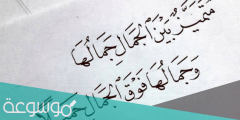 مُتَمَيِّزٌ بَيْنَ الْجَمَالِ جَمَالُهَا
وَجَمَالُهَا فَوْقَ الْجَمَالِ
موسوعة